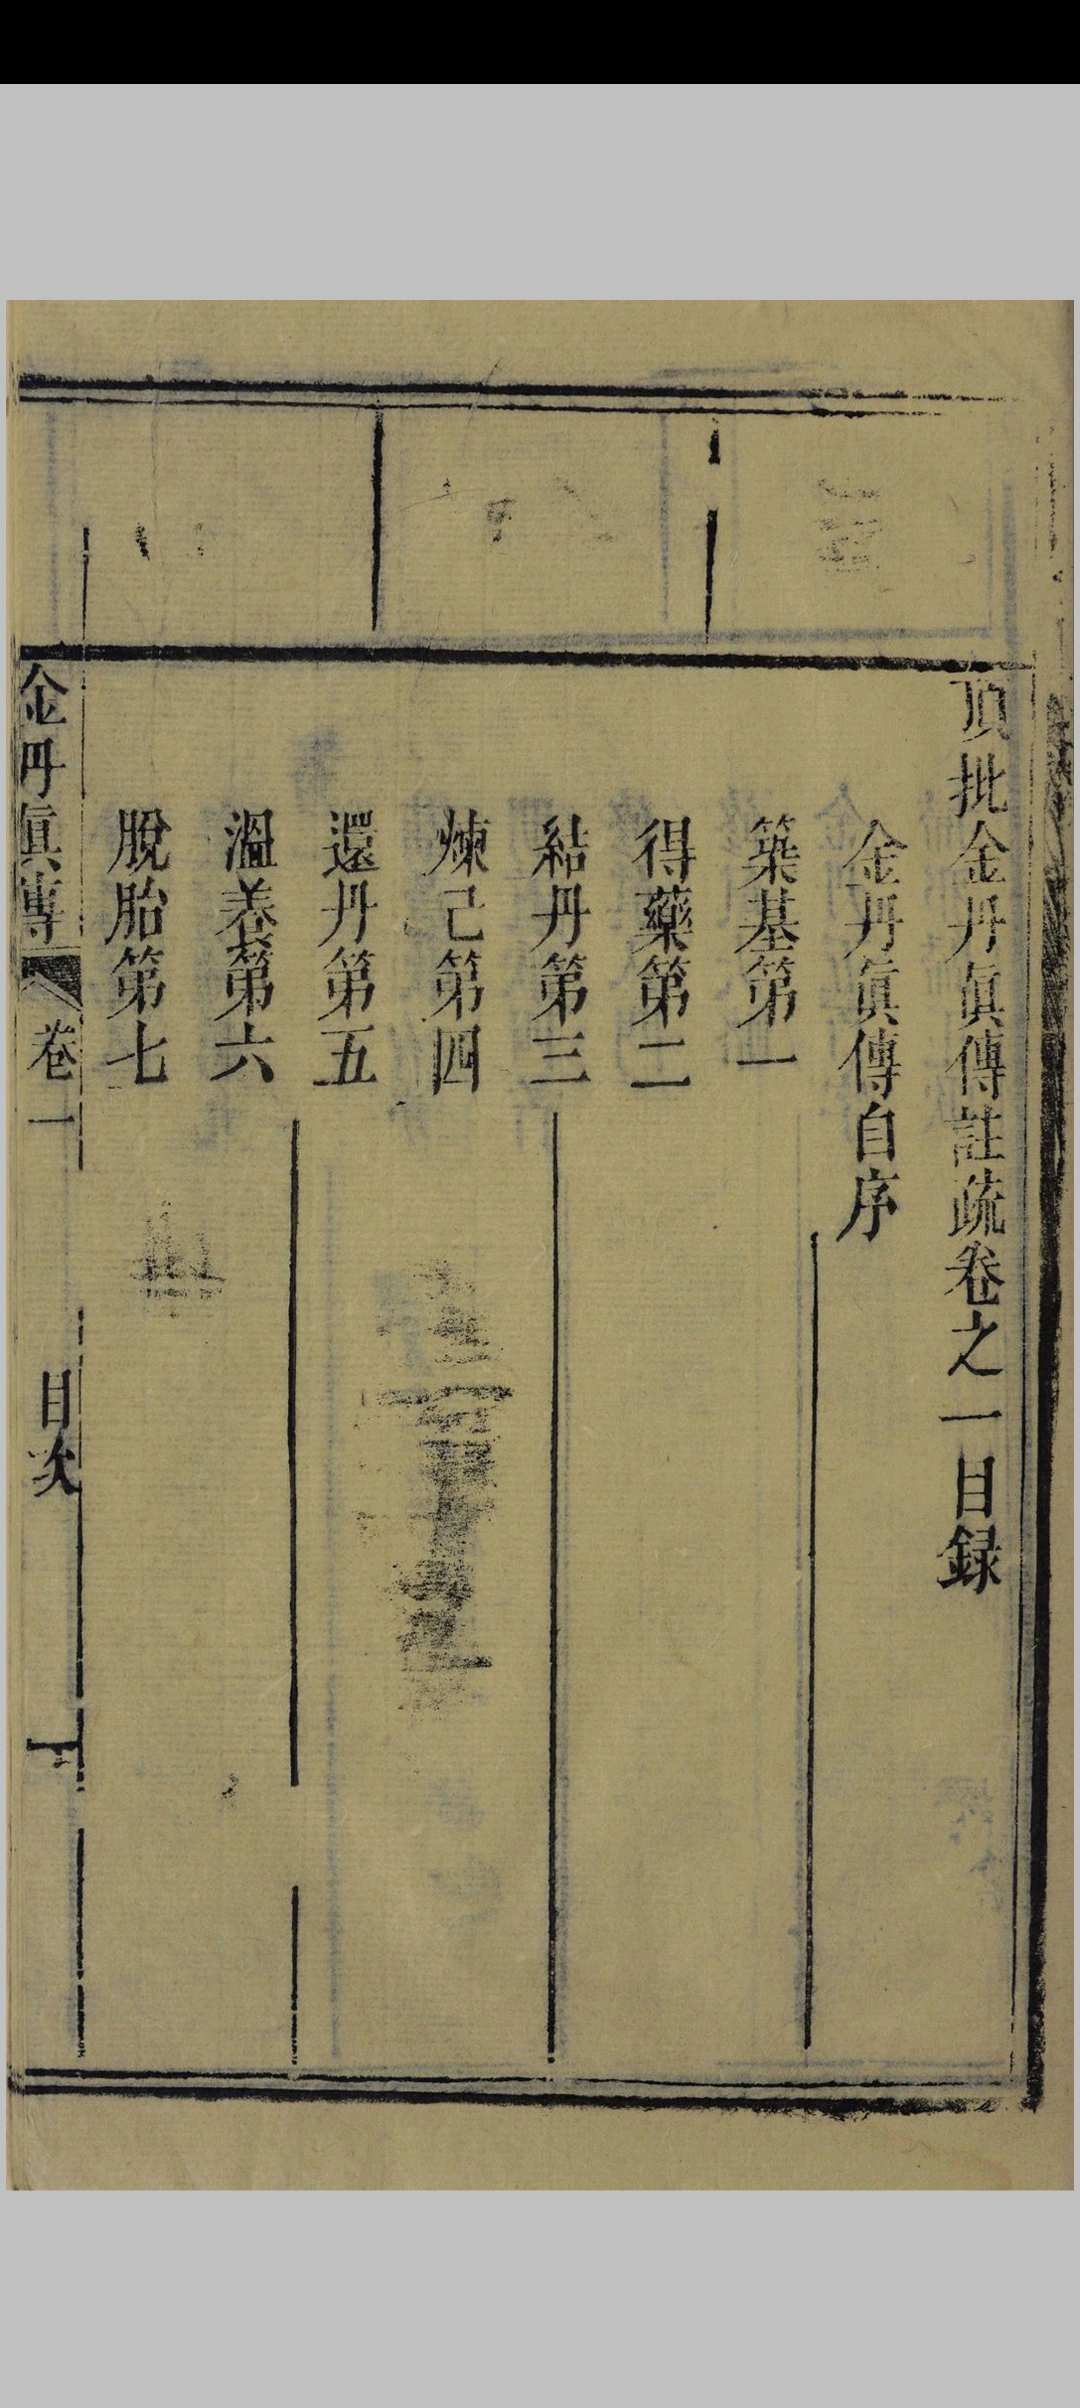 頂批金丹眞傳註疏卷之一目録
金丹眞傳自序
築基第一
得藥第二
結丹第三
煉己第四
還丹第五
溫養第六
脫胎第七
金丹眞傳 卷一 目次